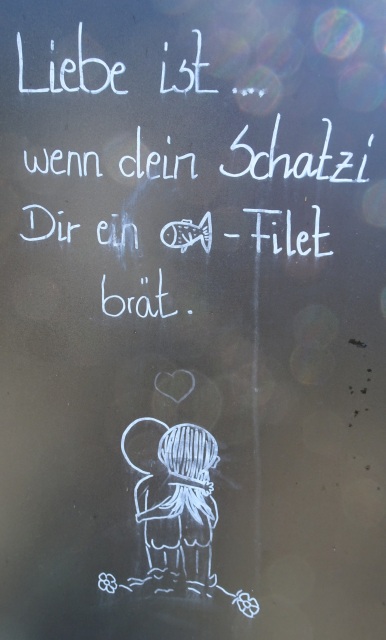 Liebe ist....
wenn dein Schatzi
Dir ein -Filet
brät.